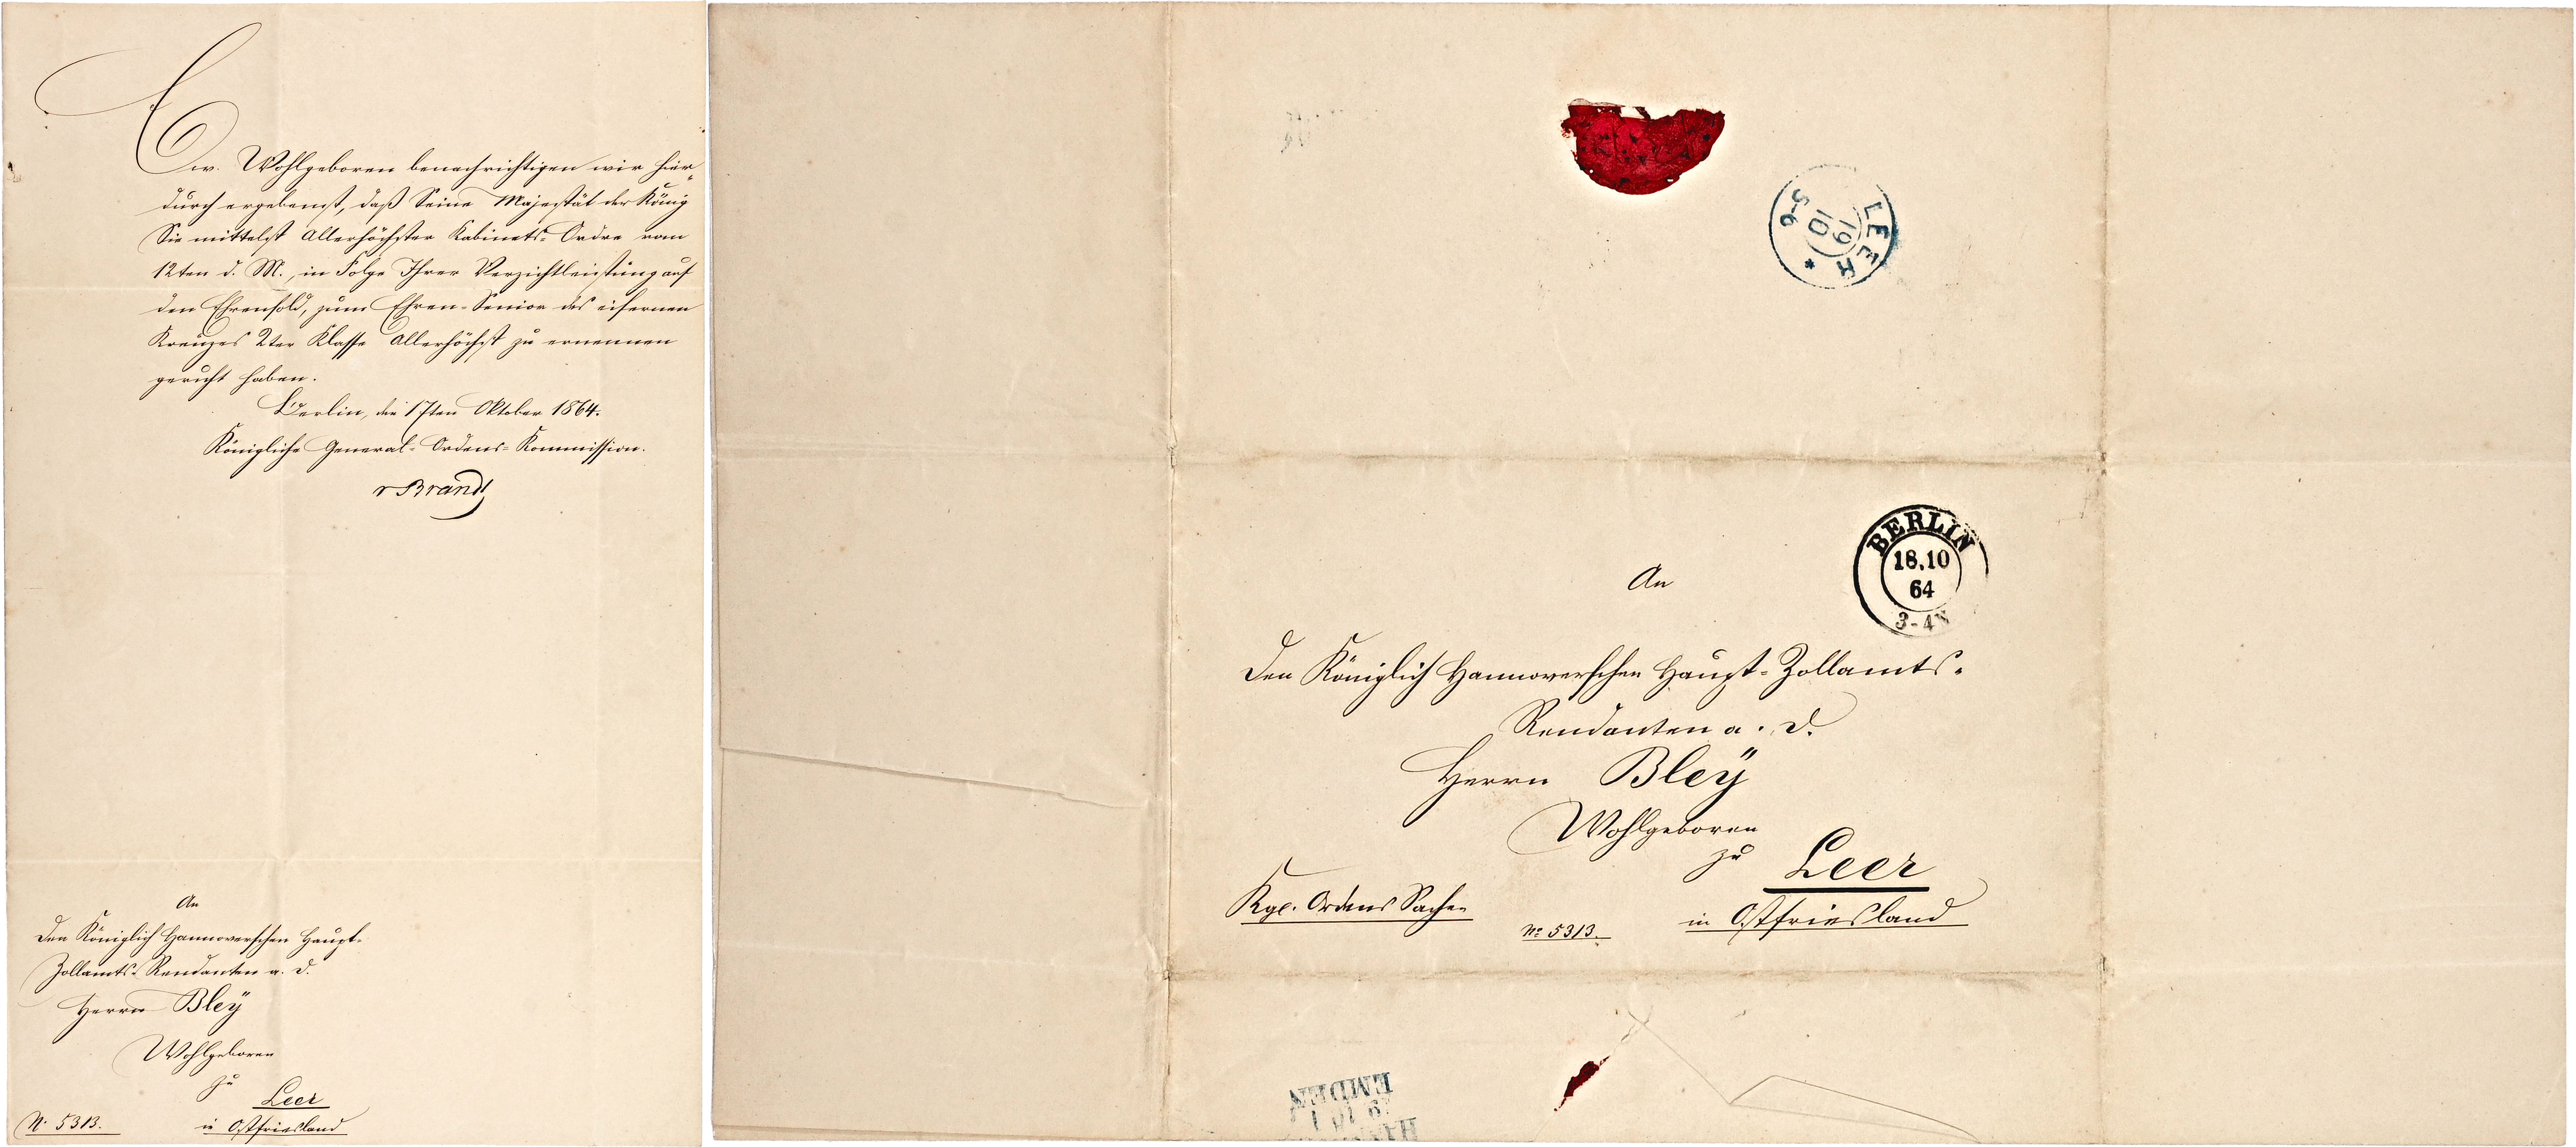 Ew. Wohlgeboren benachrichtigen wir hier-
durch ergebenst, daß Seine Majestät der König
Sie mittelst Allerhöchster Kabinets-Ordre vom
12ten d. M. in Folge Ihrer Verzichtleistung auf
den Ehrensold, zum Ehren-Senior des eisernen
Kreuzes 2ter Klasse Allerhöchst zu ernennen
geruht haben.
Berlin, den 17ten Oktober 1864.
Königliche General-Ordens-Kommission.
v Brandt
An
den Königlich Hannoverschen Haupt-
Zollamts-Rendanten a. D.
Herrn Bleÿ
Wohlgeboren
zu
Leer
in Ostfriesland
No 5313.
LEER
19
10
5-6
*
BERLIN
18.10
64
3-4
An
den Königlich Hannoverschen Haupt-Zollamts-
Rendanten a. D.
Herrn Bleÿ
Wohlgeboren
zu Leer
in Ostfriesland
Kgl. Ordens Sache
No 5313.
EMDEN